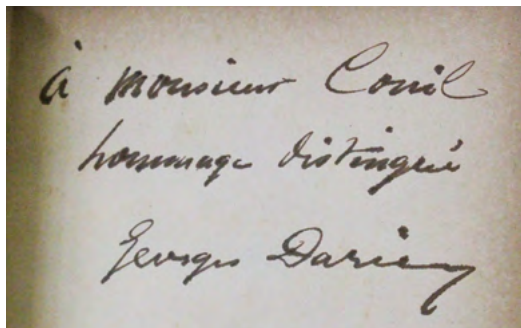 à monsieur Conil
hommage distingué
Georges Darien